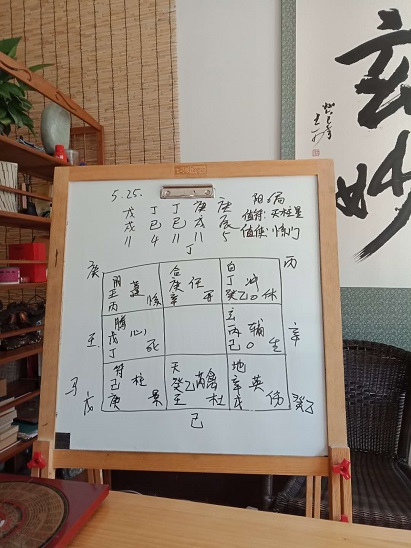 玄妙
5.25.
戊 丁 丁 庚 庚
戌 巳 巳 戌 辰
11 4 11 11 5
值符:天柱星
值使:惊门
丁
庚
丙
蓬
丙
惊
合
庚 任
辛 开
白
丁 冲
癸己O 休
壬
腾
戊 心
丁 死
玄
丙 辅
己O 生
辛
马
戊
符
己 柱
庚 景
天
癸乙芮禽
壬 杜
地
辛 英
戊 伤
己